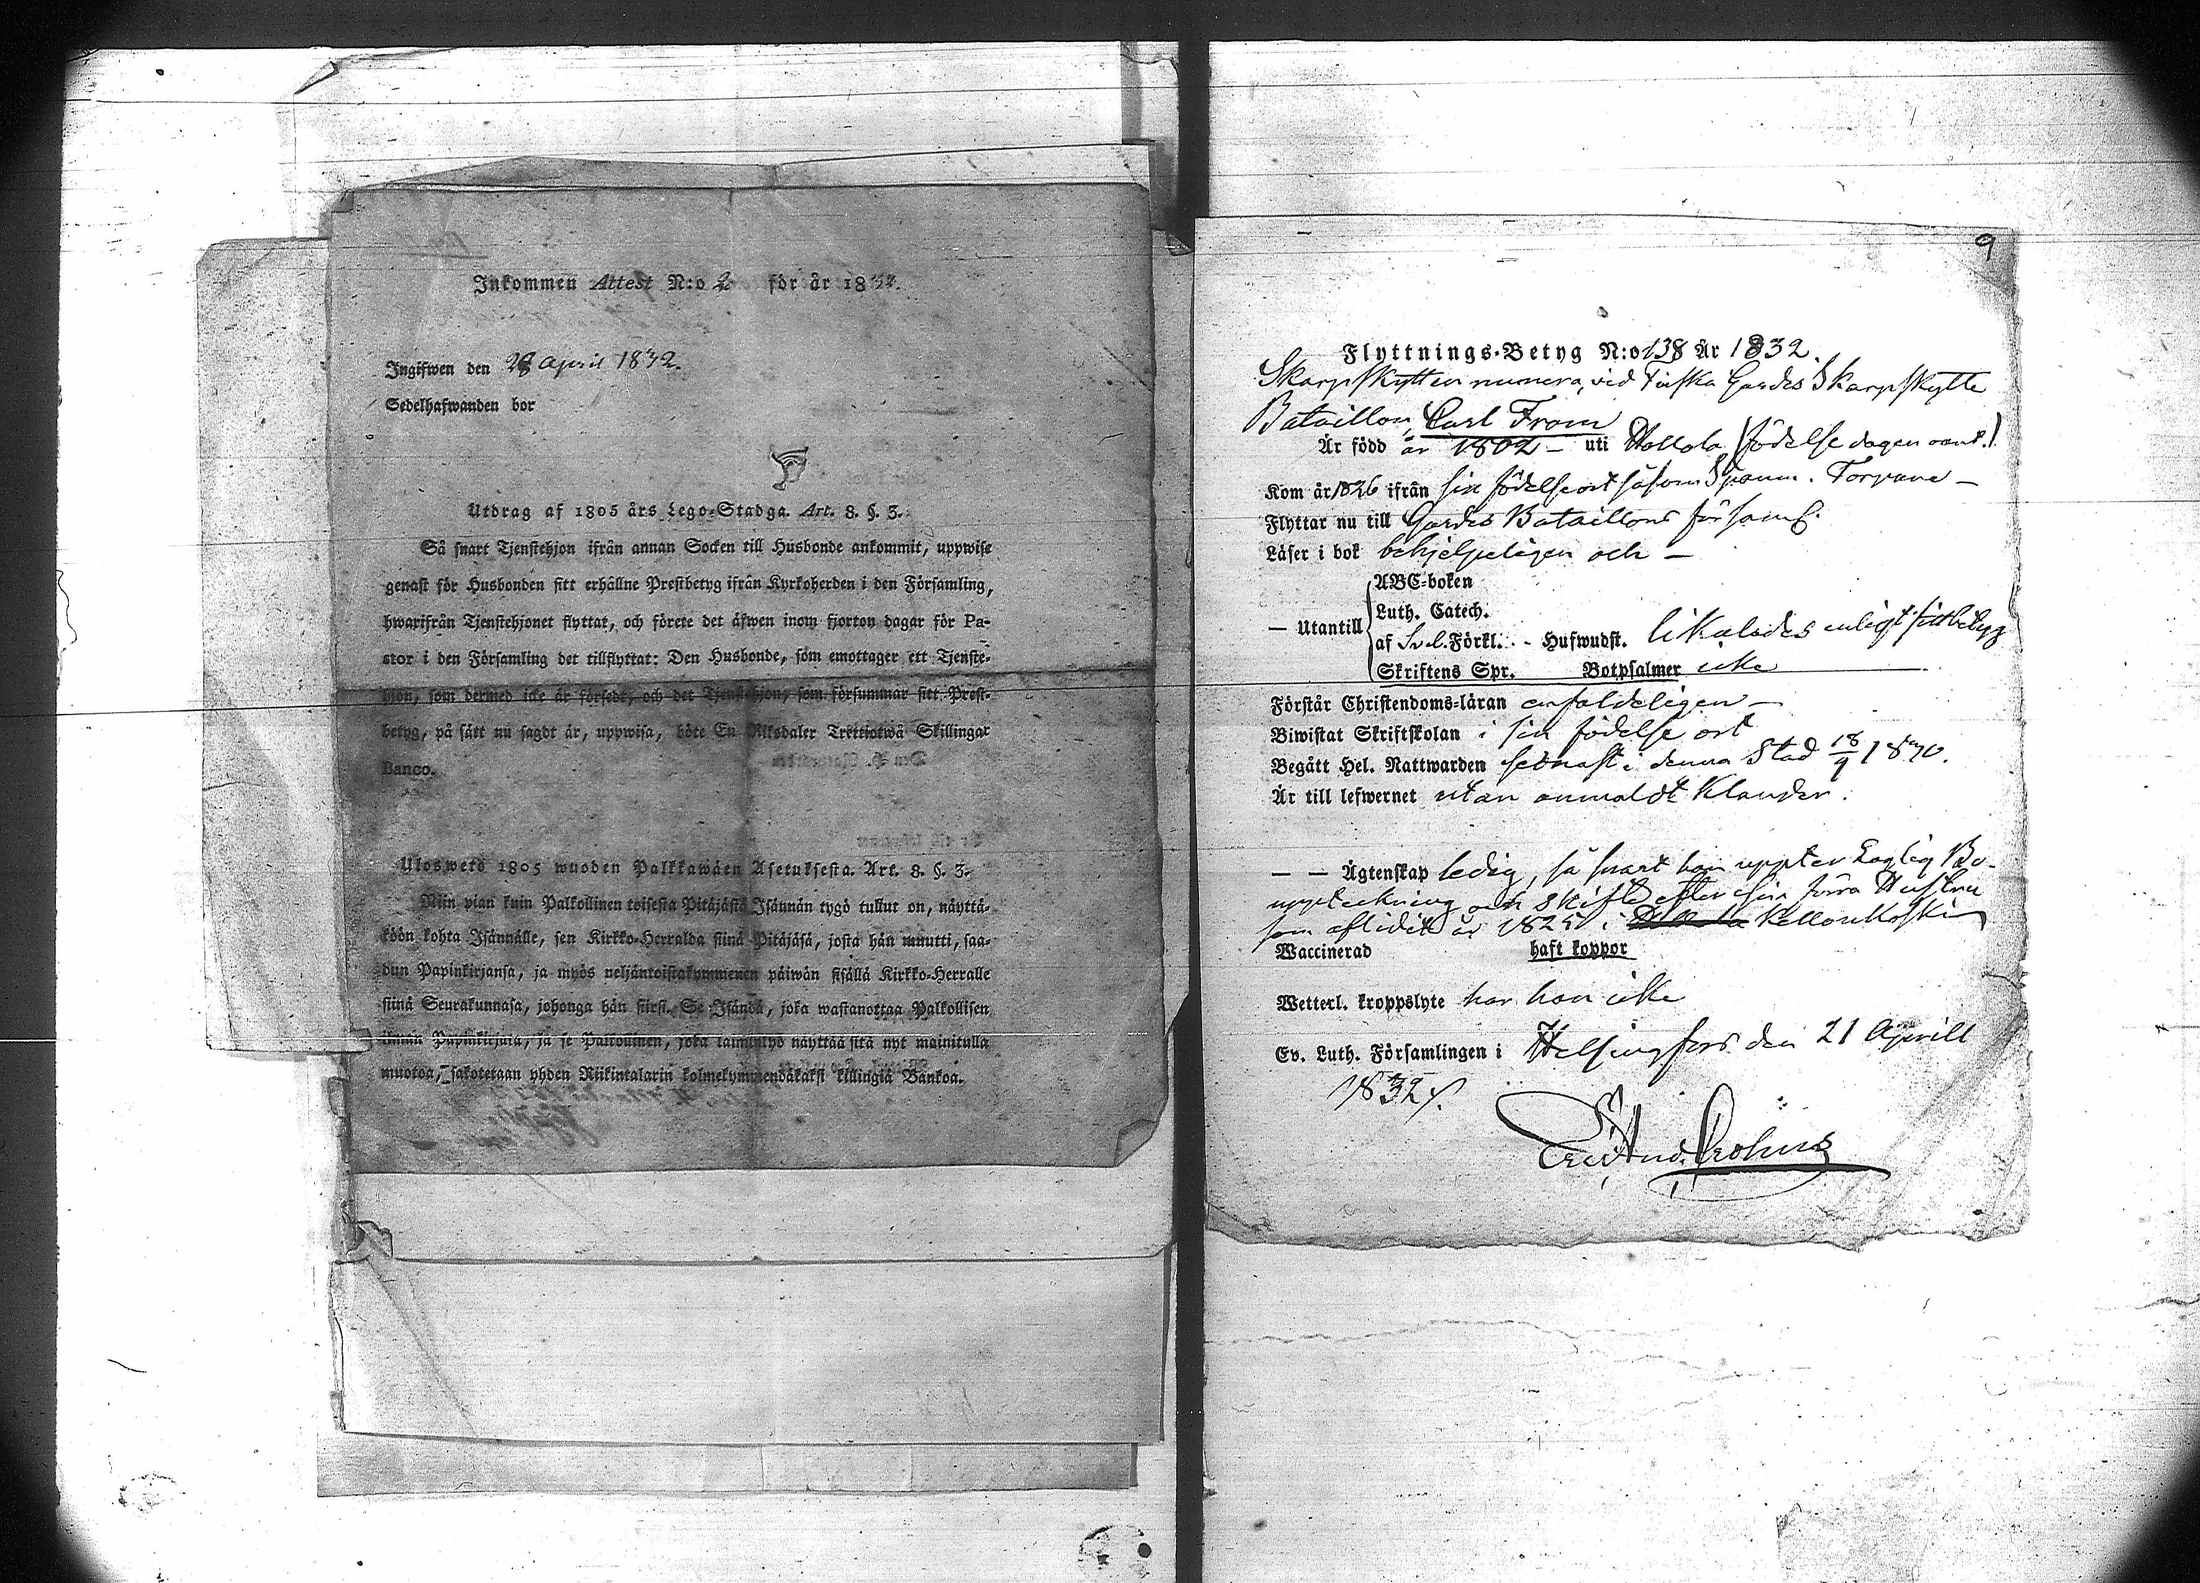 Inkommen Attest N:o 2 för år 1832.
Ingifwen den 28 April 1832.
Sedelhafwanden bor
Utdrag af 1805 års Lego-Stadga. Art. 8. §. 3.
Så snart Tjenstehjon ifrån annan Socken till Husbonde ankommit, uppwise
genast för Husbonden sitt erhållne Prestbetyg ifrån Kyrkoherden i den Församling,
hwarifrån Tjenstehjonet flyttat, och förete det äfwen inom fjorton dagar för Pa-
stor i den Församling det tillflyttat: Den Husbonde, som emottager ett Tjenste-
hjon, som dermed icke är försedt, och det Tjenstehjon, som försummar sitt Prest-
betyg, på sätt nu sagdt är, uppwisa, böte En Riksdaler Trettiotwå Skillingar
Banco.
Ulosweto 1805 wuoden Palkkawäen Asetuksesta. Art. 8. §. 3.
Niin pian kuin Palkollinen toisesta Pitäjästä Isännän tygö tullut on, näyttä-
köön kohta Isännälle, sen Kirkko-Herralda siinä Pitäjäsä, josta hän muutti, saa-
dun Papinkirjansa, ja myös neljäntoistakymmenen päiwän sisällä Kirkko-Herralle
siinä Seurakunnasa, johonga hän siirsi. Se Isändä, joka wastanottaa Palkollisen
ilman Papinkirjata, ja se Palkollinen, joka laiminlyö näyttää sitä nyt mainitulla
muotoa, sakotetaan yhden Riikintalarin kolmekymmendäkaksi killingiä Bankoa.
9
Flyttnings-Betyg N:o 138 År 1832.
Skarpskytten numera, vid Finska Gardes Skarpskytte
Bataillon, Carl From
Är född år 1802 – uti Hollola (födelse dagen oant.)
Kom år 1826 ifrån sin födelseort såsom Spann. Torpare –
Flyttar nu till Gardes Bataillons församl.
Läser i bok behjelpeligen och –
ABC-boken
Luth. Catech.
– Utantill af Förkl. - Hufwudst. likaledes enligt sitt betyg
Skriftens Spr. Botpsalmer icke
Förstår Christendoms-läran enfaldeligen –
Biwistat Skriftskolan i sin födelse ort
Begått Hel. Nattwarden sednast i denna Stad 18/9 1830.
Är till lefwernet utan anmäldt klander.
– – Ägtenskap ledig, så snart han uppter Laglig Bo-
uppteckning och skifte efter sin förra Hustru
som aflidit år 1825 i Kellonkoski
Waccinerad haft koppor
Wetterl. kroppslyte har han icke
Ev. Luth. Församlingen i Helsingfors den 21 Aprill
1832.